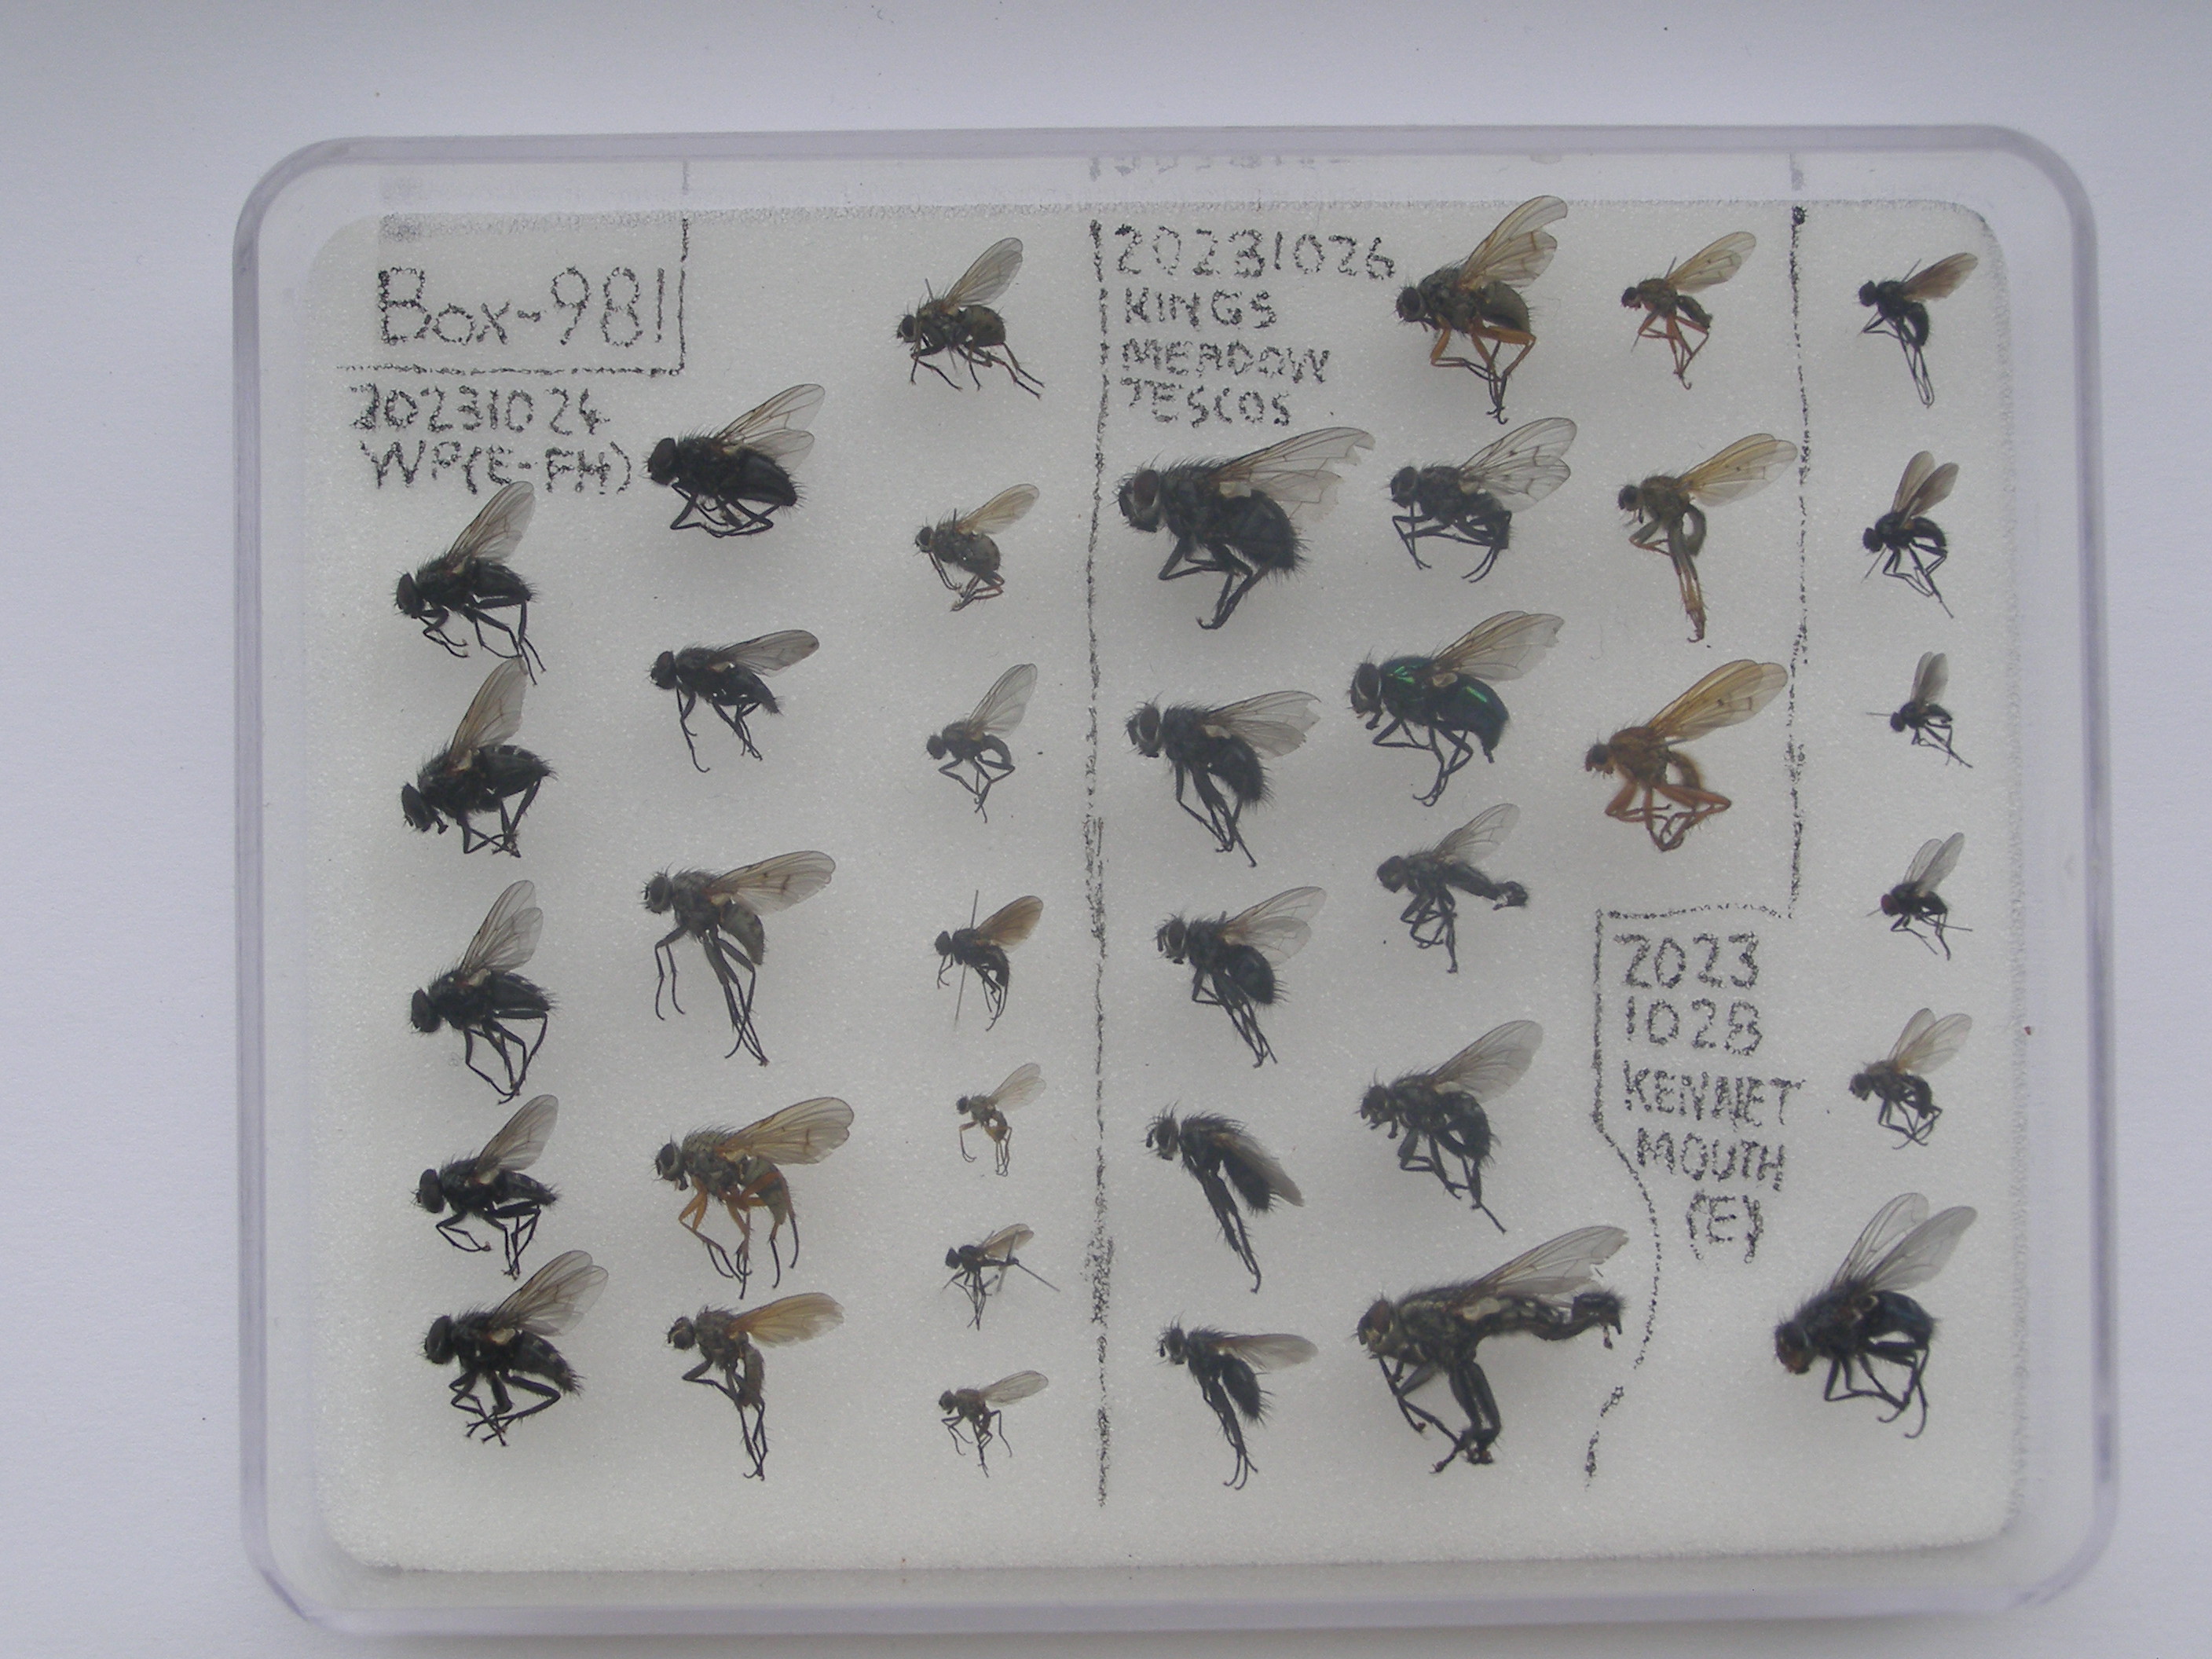 Box-981
20231024
WP(E-FH)
20231026
KINGS
MEADOW
TESCOS
2023
1028
KENNET
MOUTH
(E)